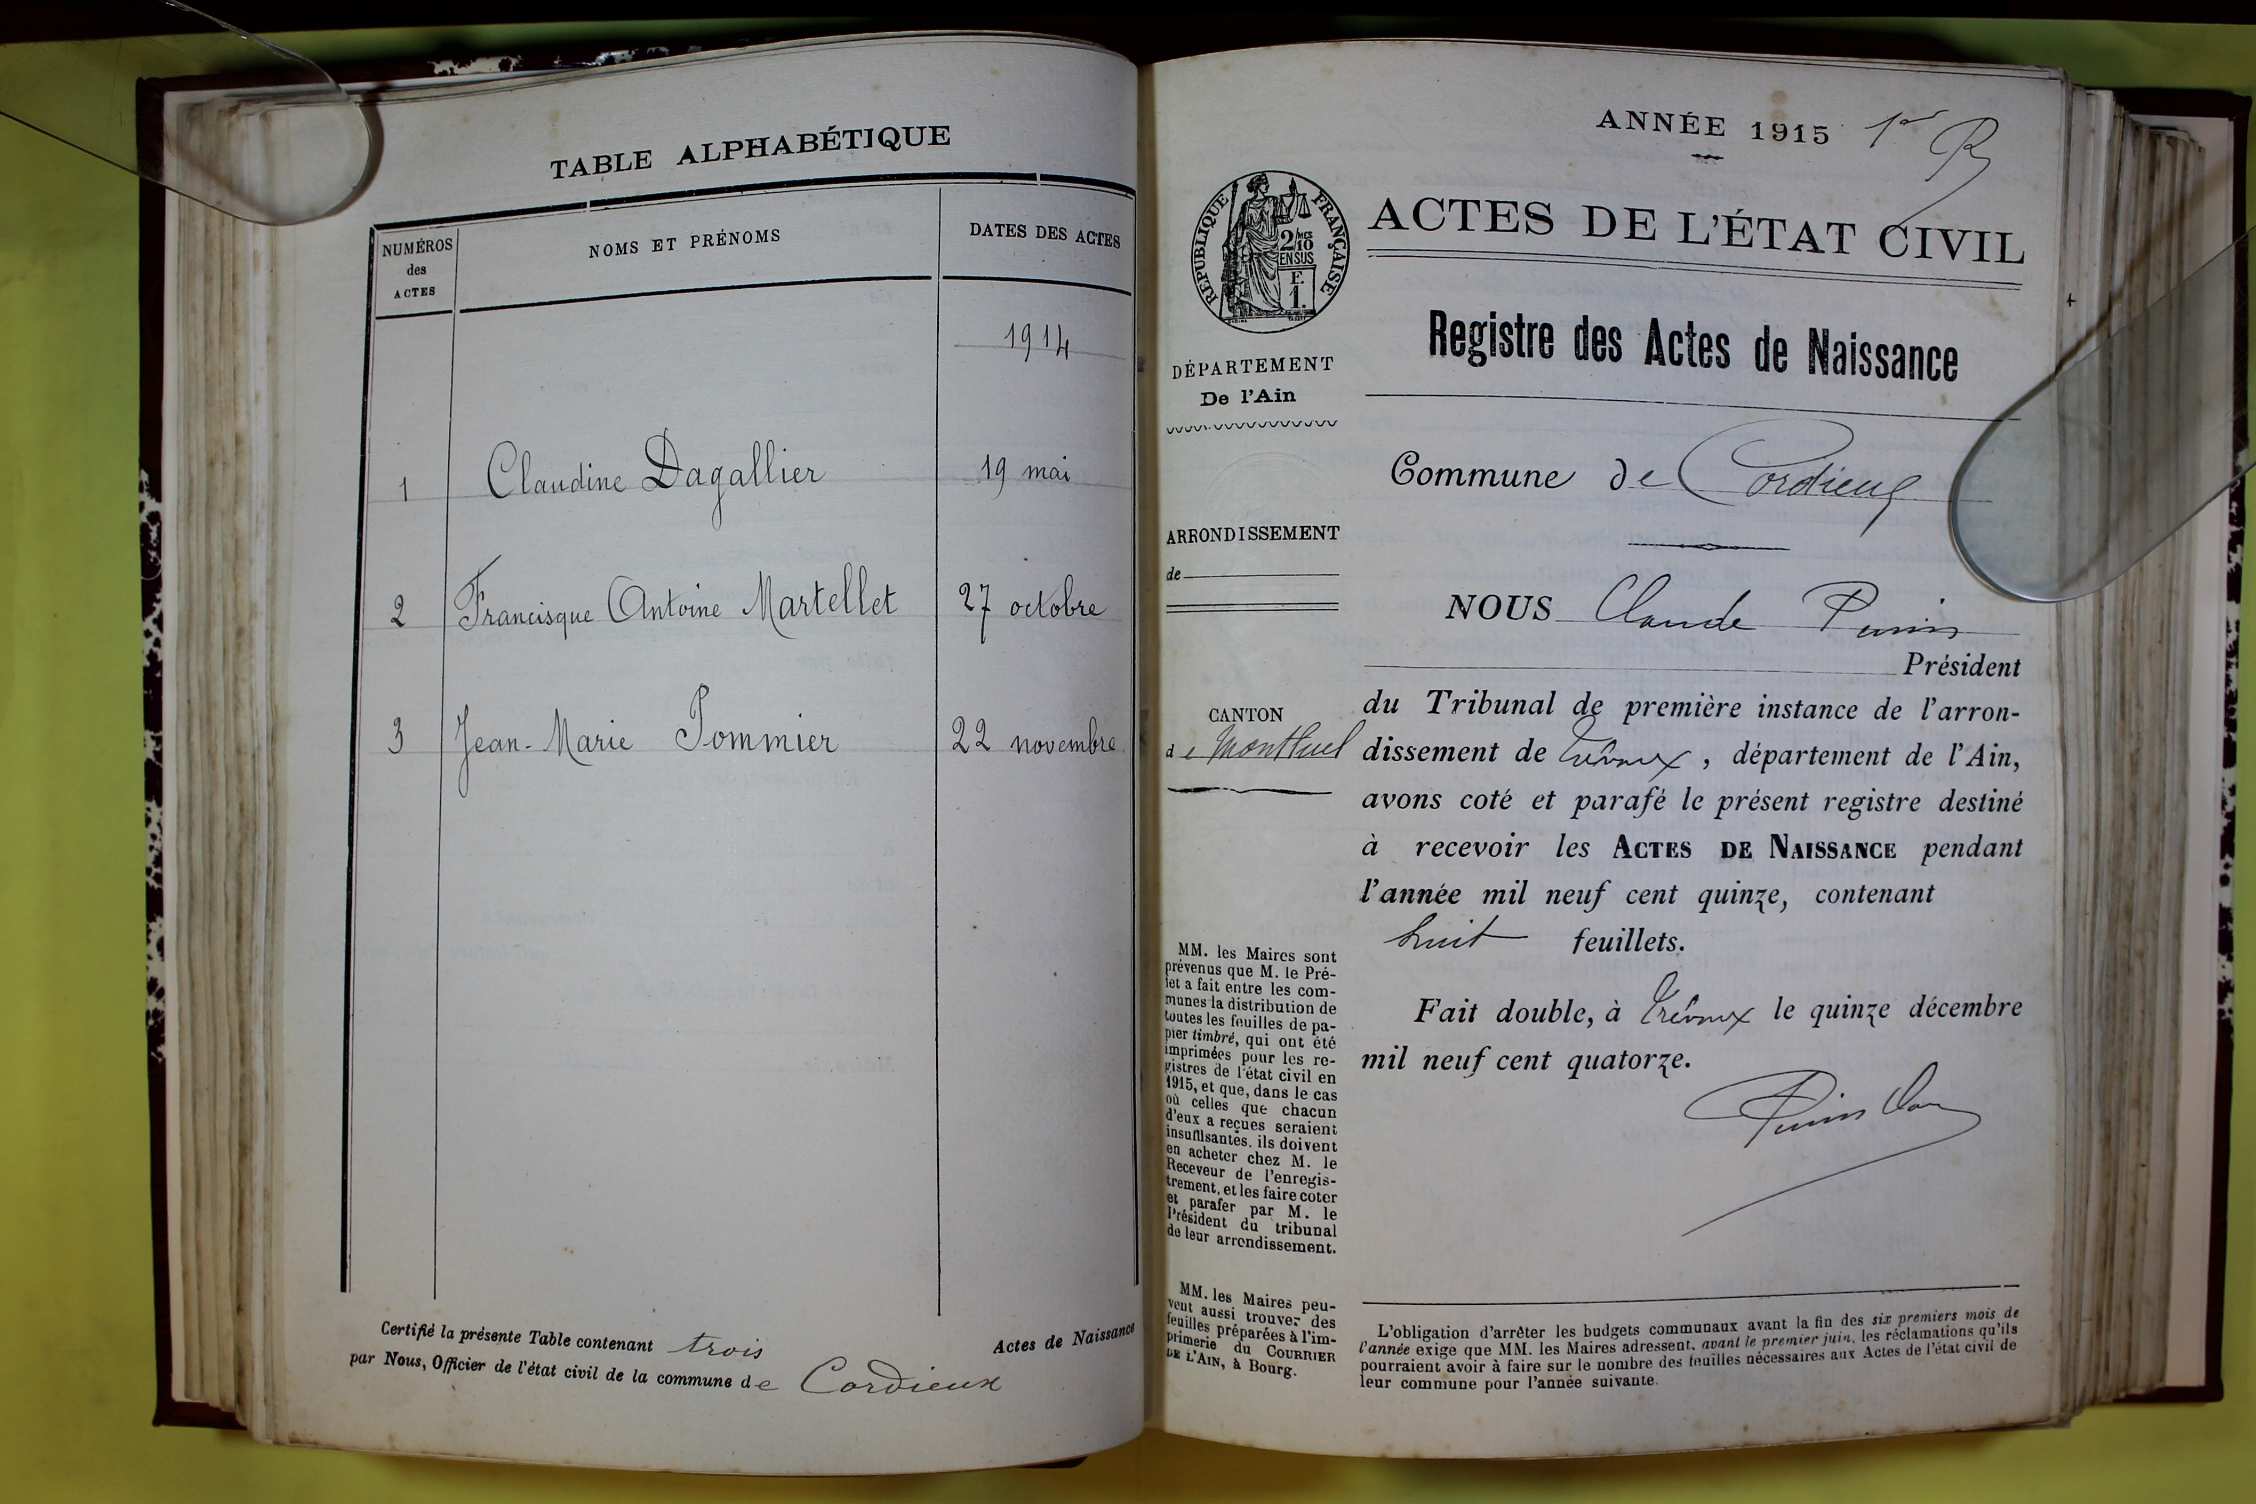 TABLE ALPHABÉTIQUE
NUMÉROS des ACTES
NOMS ET PRÉNOMS
DATES DES ACTES
1914
1 Claudine Dagallier 19 mai
2 Francisque Antoine Martellet 27 octobre
3 Jean-Marie Pommier 22 novembre
Certifié la présente Table contenant trois Actes de Naissance
par Nous, Officier de l'état civil de la commune de Cordieux
ANNÉE 1915 1er
RÉPUBLIQUE FRANÇAISE
2/10 MES
EN SUS
F.
1.
ACTES DE L'ÉTAT CIVIL
Registre des Actes de Naissance
DÉPARTEMENT
De l'Ain
ARRONDISSEMENT
de
CANTON
de Montluel
MM. les Maires sont
prévenus que M. le Pré-
fet a fait entre les com-
munes la distribution de
toutes les feuilles de pa-
pier timbré, qui ont été
imprimées pour les re-
gistres de l'état civil en
1915, et que, dans le cas
où celles que chacun
d'eux a reçues seraient
insuffisantes, ils doivent
en acheter chez M. le
Receveur de l'enregis-
trement, et les faire coter
et parafer par M. le
Président du tribunal
de leur arrondissement.
MM. les Maires peu-
vent aussi trouver des
feuilles préparées à l'im-
primerie du COURRIER
DE L'AIN, à Bourg.
Commune de Cordieux
NOUS Claude
Président
du Tribunal de première instance de l'arron-
dissement de Trévoux, département de l'Ain,
avons coté et parafé le présent registre destiné
à recevoir les ACTES DE NAISSANCE pendant
l'année mil neuf cent quinze, contenant
huit feuillets.
Fait double, à Trévoux le quinze décembre
mil neuf cent quatorze.
L'obligation d'arrêter les budgets communaux avant la fin des six premiers mois de
l'année exige que MM. les Maires adressent, avant le premier juin, les réclamations qu'ils
pourraient avoir à faire sur le nombre des feuilles nécessaires aux Actes de l'état civil de
leur commune pour l'année suivante.